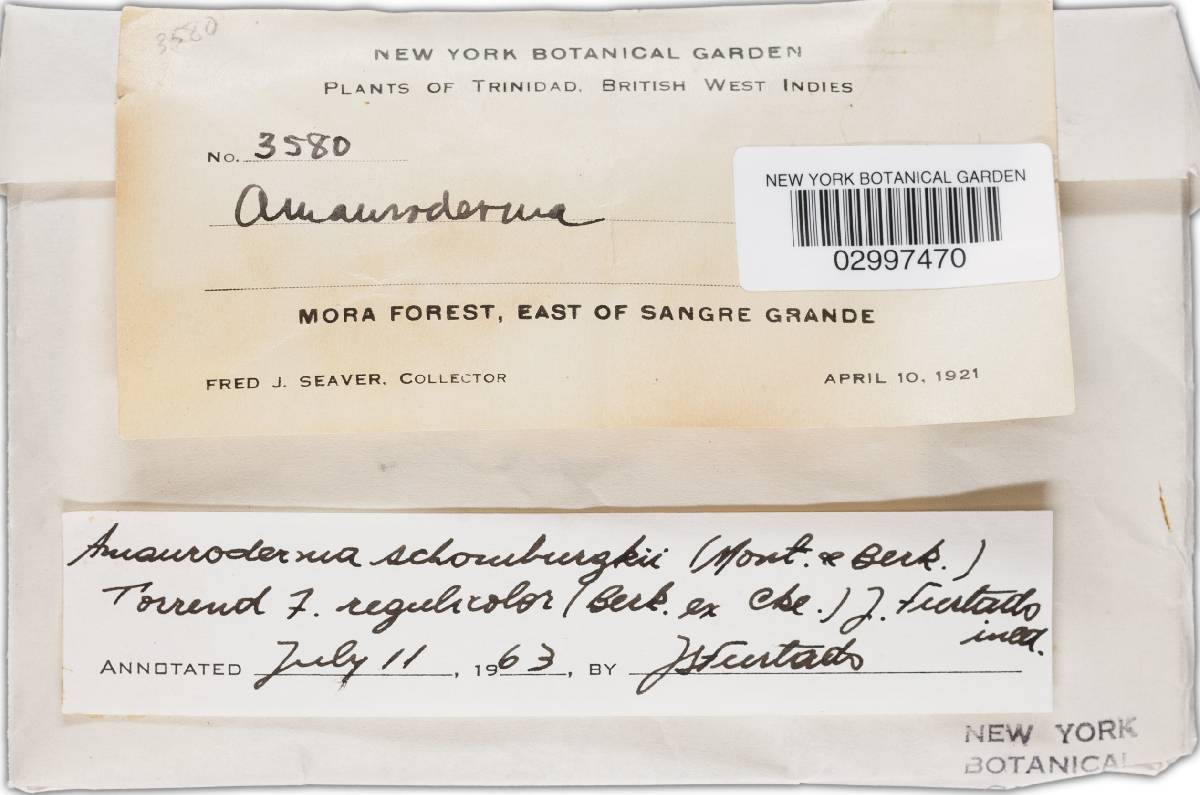 3580
NEW YORK BOTANICAL GARDEN
PLANTS OF TRINIDAD, BRITISH WEST INDIES
No. 3580
Amauroderma
NEW YORK BOTANICAL GARDEN
02997470
MORA FOREST, EAST OF SANGRE GRANDE
FRED J. SEAVER, COLLECTOR APRIL 10, 1921
Amauroderma schomburgkii (Mont. & Berk.)
Torrend f. regulicolor (Berk. ex Cke.) J. Furtado
ined.
ANNOTATED July 11, 1963, BY JSFurtado
NEW YORK
BOTANICAL